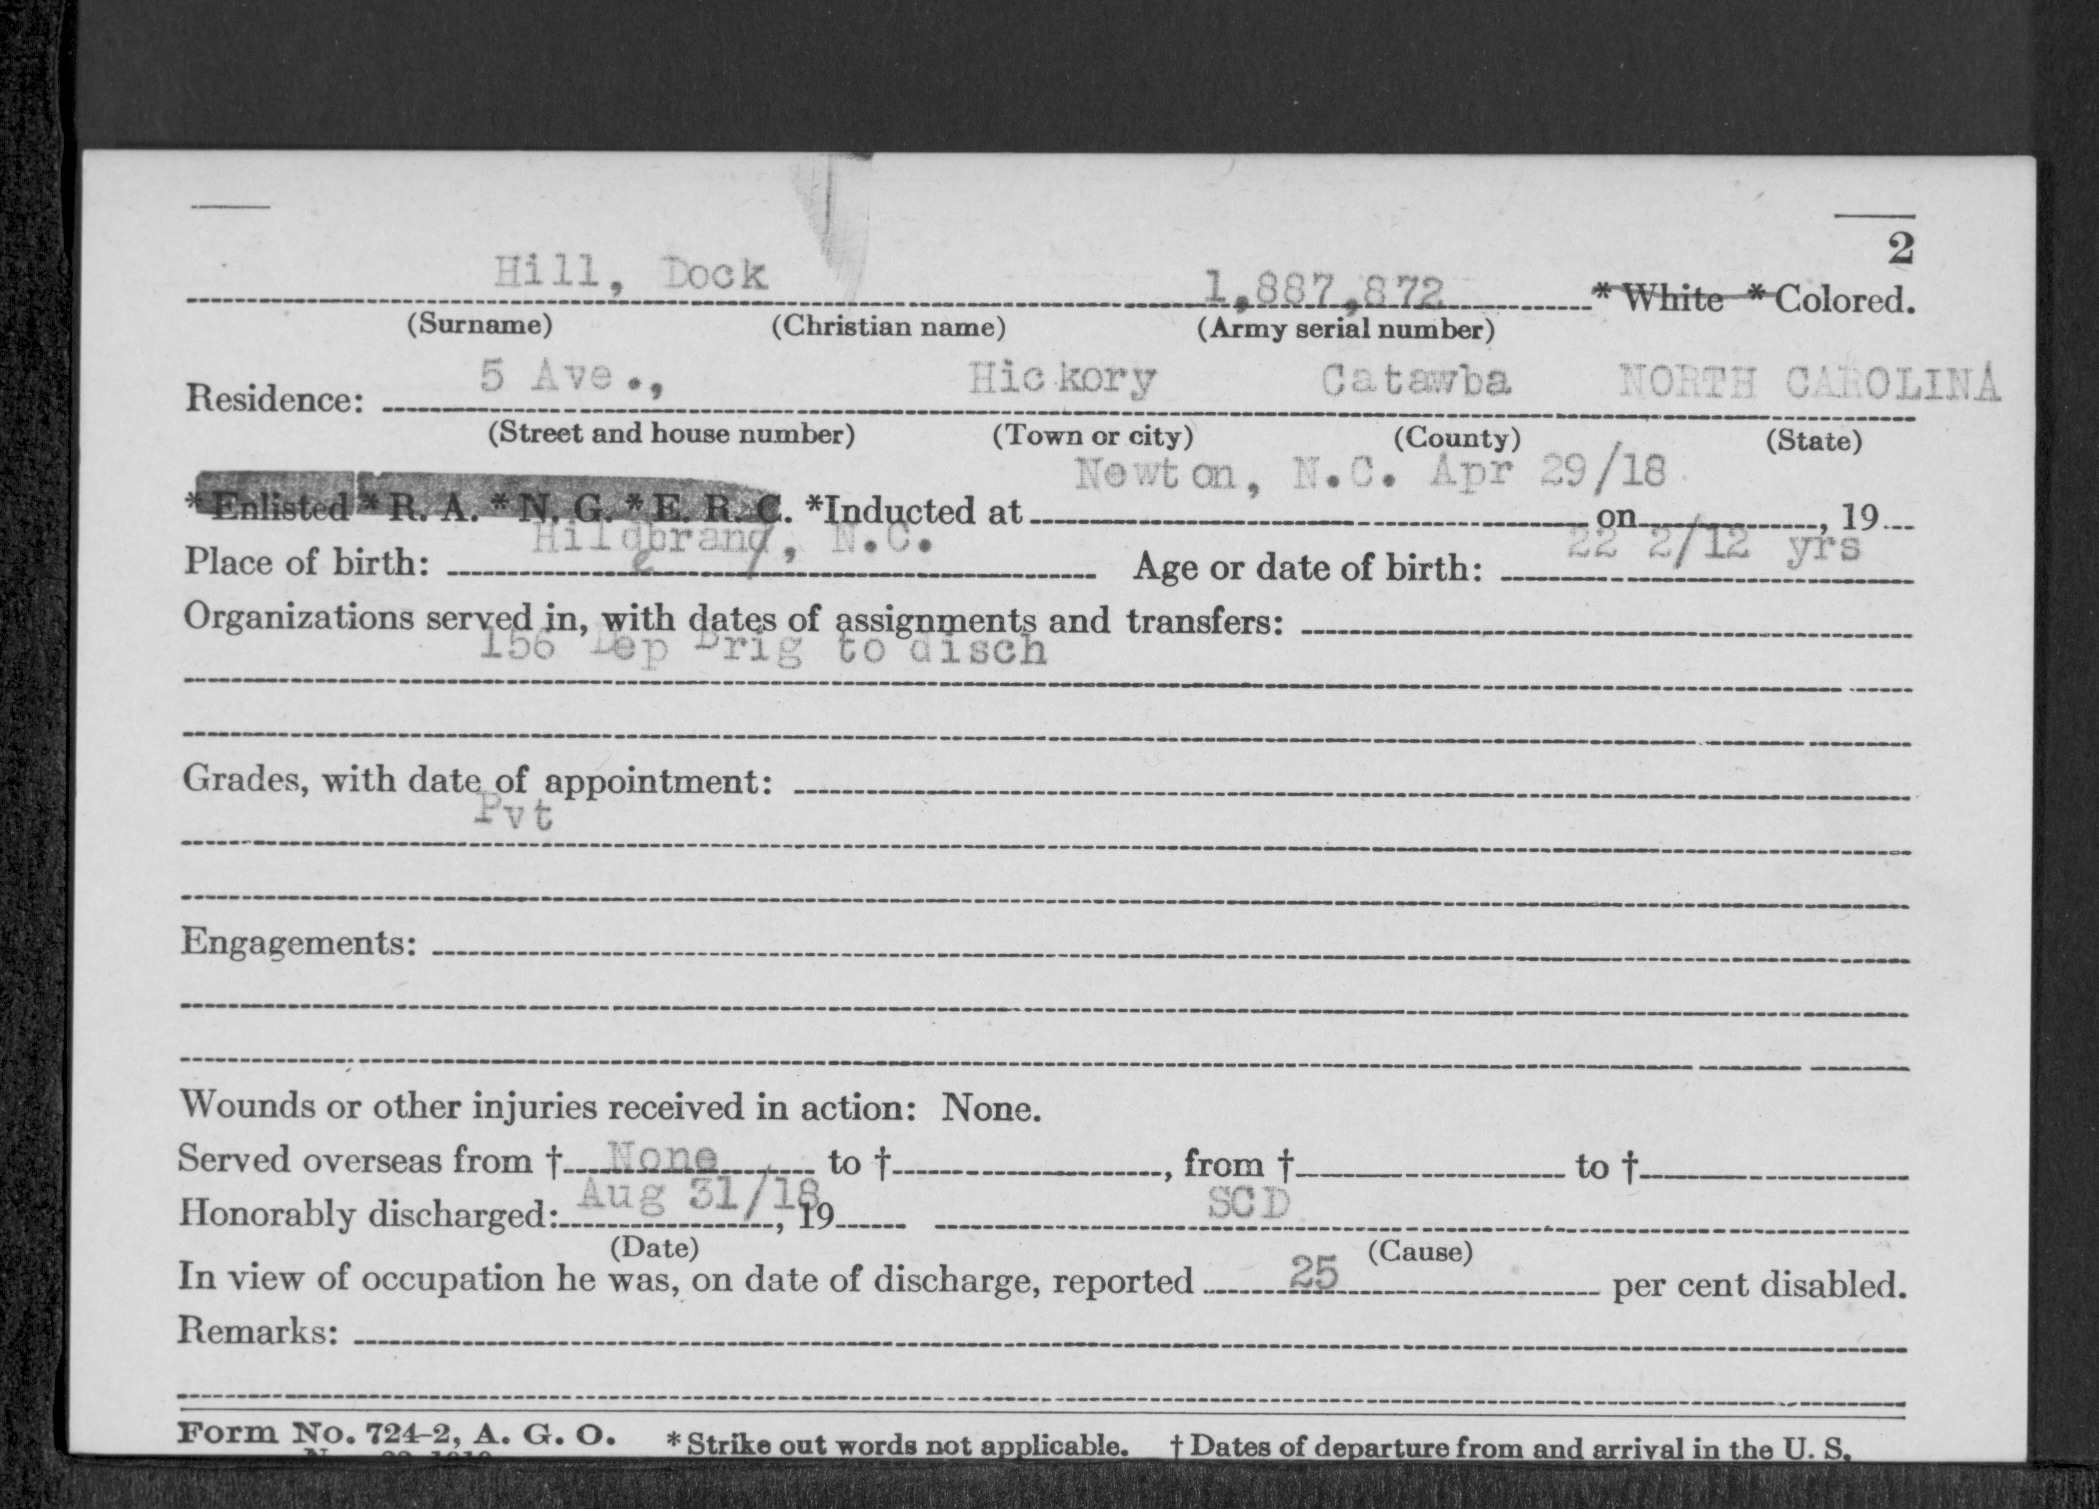 2
Hill, Dock 1,887,872 * White * Colored.
(Surname) (Christian name) (Army serial number)
Residence: 5 Ave., Hickory Catawba NORTH CAROLINA
(Street and house number) (Town or city) (County) (State)
* Enlisted * R. A. * N. G. * E. R. C. *Inducted at Newton, N.C. Apr 29/18 on , 19
Place of birth: Hildebrand, N.C. Age or date of birth: 22 2/12 yrs
Organizations served in, with dates of assignments and transfers:
156 Dep Brig to disch
Grades, with date of appointment:
Pvt
Engagements:
Wounds or other injuries received in action: None.
Served overseas from † None to † , from † to †
Honorably discharged: Aug 31/18 , 19 SCD
(Date) (Cause)
In view of occupation he was, on date of discharge, reported 25 per cent disabled.
Remarks:
Form No. 724-2, A. G. O. * Strike out words not applicable. † Dates of departure from and arrival in the U. S.